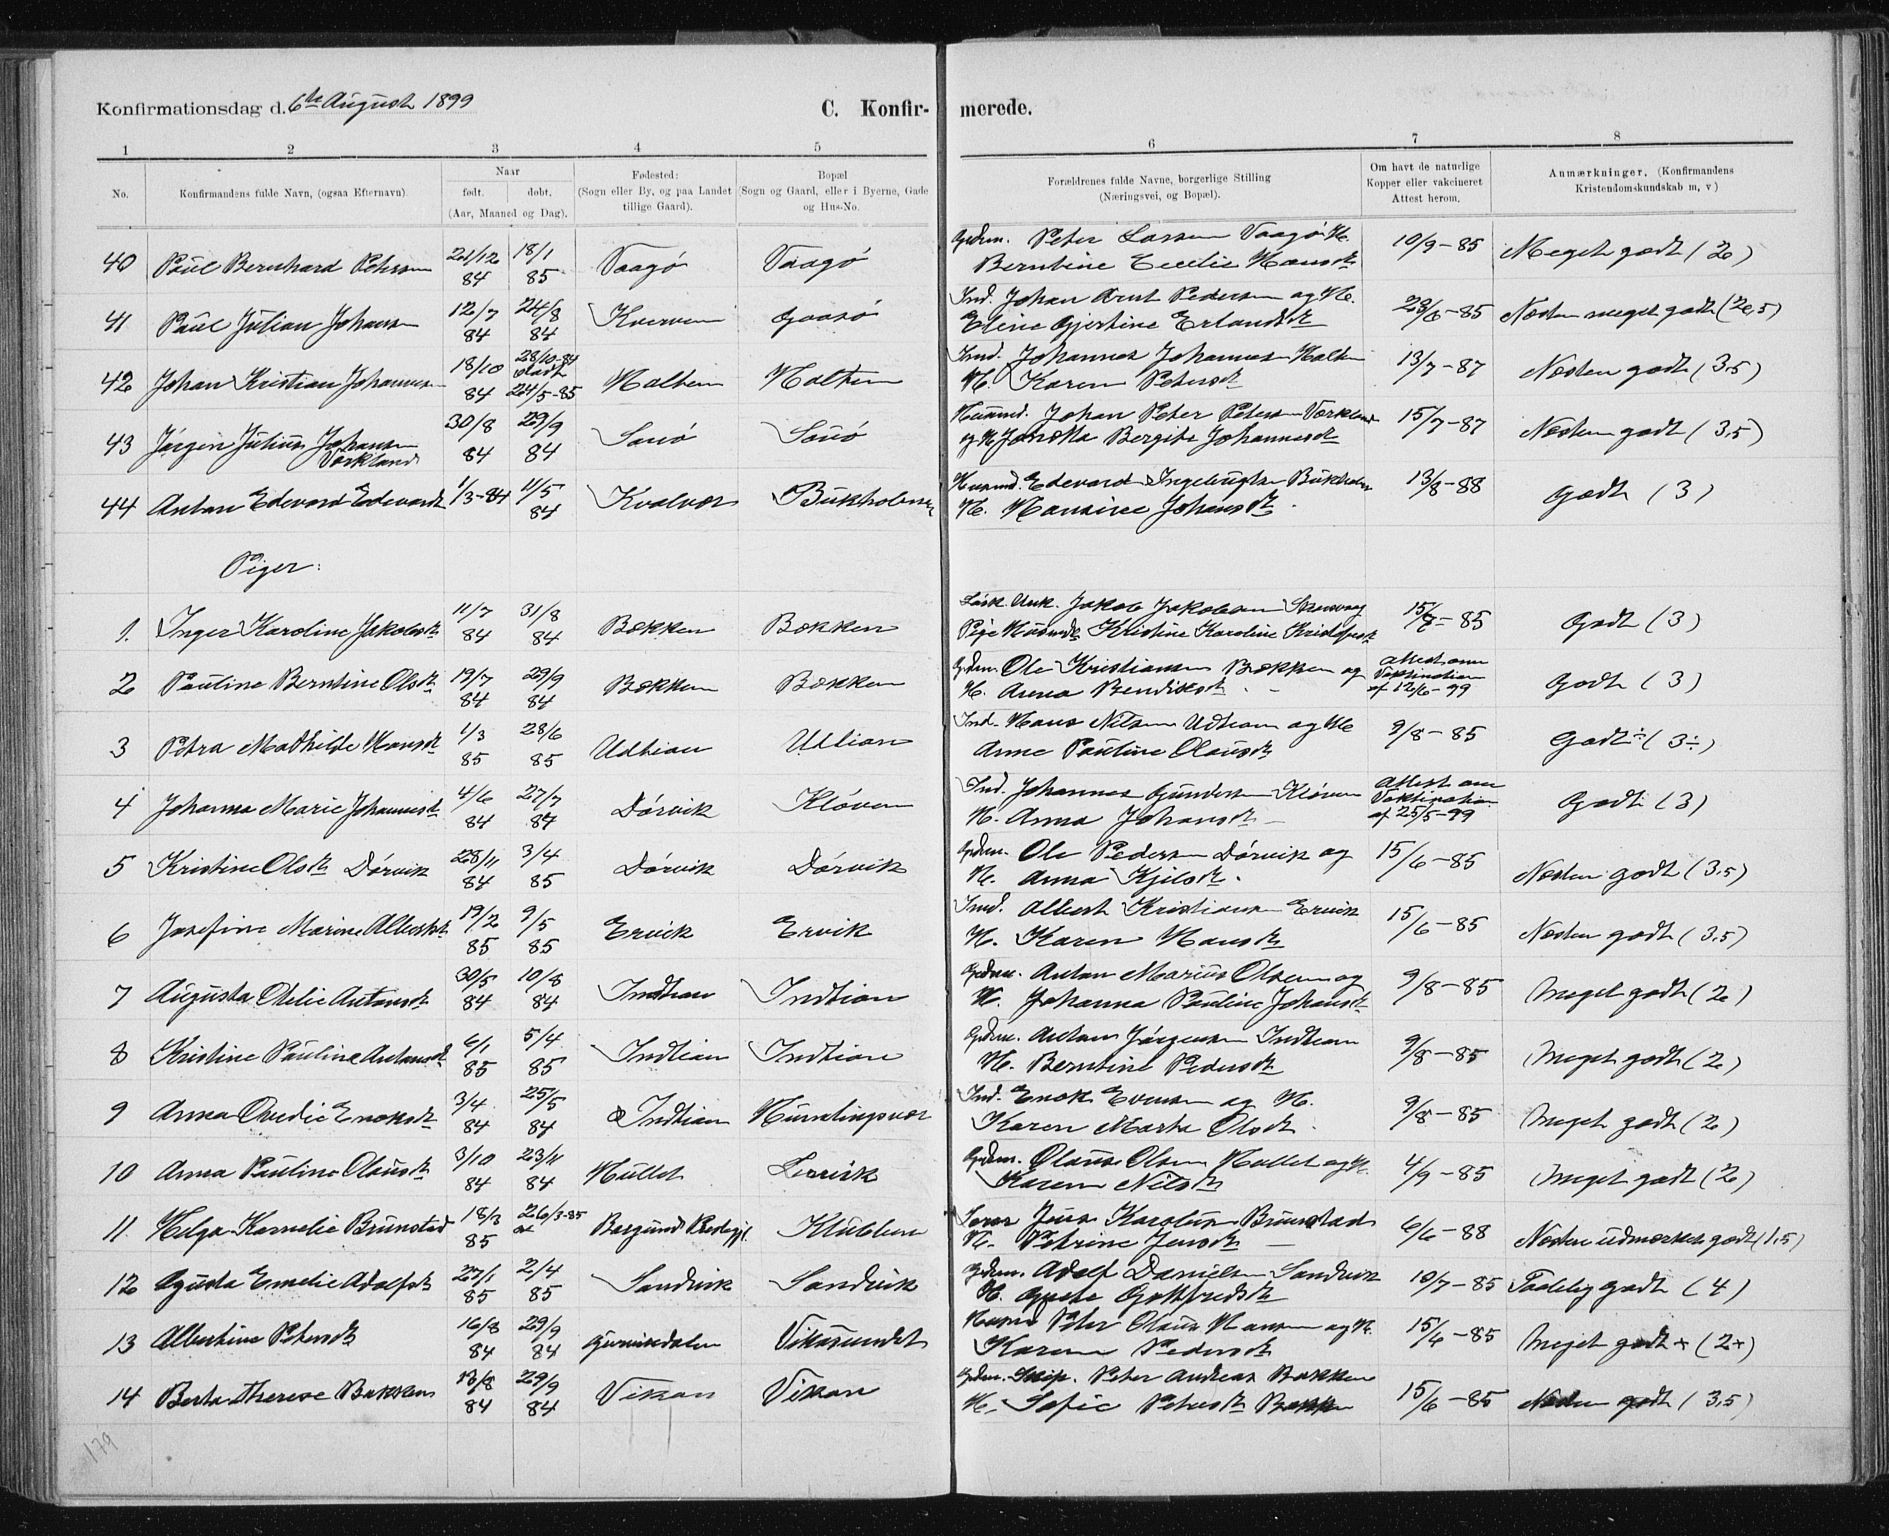 Konfirmationsdag d. 6te August 1899 C. Konfirmerede.
1 2 3 4 5 6 7 8
No. Konfirmandens fulde Navn, (ogsaa Efternavn). Naar født. døbt. (Aar, Maaned og Dag). Fødested: (Sogn eller By, og paa Landet tillige Gaard). Bopæl (Sogn og Gaard, eller i Byerne, Gade og Hus-No. Forældrenes fulde Navne, borgerlige Stilling (Næringsvei, og Bopæl). Om havt de naturlige Kopper eller vakcineret Attest herom. Anmærkninger, (Konfirmandens Kristendomskundskab m, v)
40 Paul Bernhard Petersen 21/12 84 18/1 85 Vaagø Vaagø Gdm. Peter Larsen Vaagø H. 10/9-85 Meget godt (2)
Berntine Cecilie Hansdt
41 Paul Julian Johansen 12/7 84 24/8 84 Kverven Gaasø Ind. Johan Arnt Pedersen og H. 23/6-85 Næsten meget godt (2,5)
Eline Gjertine Erlandsdt
42 Johan Kristian Johannesen 18/10 84 28/10-84 24/5-85 Holten Holten Ind. Johannes Johannesen Holten 13/7-87 Næsten godt (3,5)
H. Karen Petersdt
43 Jørgen Julius Johansen Værkland 30/8 84 29/9 84 Sauø Sauø Husmd. Johan Peter Petersen Værkland 15/7-87 Næsten godt (3,5)
og H. Jonetta Bergite Johannesdt
44 Anton Edevard Edevards 1/3-84 11/5 84 Kvalvær Bukholmen Husmd. Edevard Ingebrigtsen Bukholm 13/8-88 Godt (3)
H. Hansine Johansdt.
Piger:
1. Inger Karoline Jakobsdt 11/7 84 31/8 84 Bekken Bekken Unk. Jakob Jakobsen 15/7-85 Godt (3)
Pige Kristine Karoline Kristofersdt
2 Pauline Berntine Olsdt 19/7 84 29/9 84 Bekken Bekken Gdm. Ole Kristiansen Bekken og Attest om Vaktination af 12/6-99 Godt (3)
H. Anna Bendiksdt
3 Petra Mathilde Hansdt 1/3 85 28/6 85 Udtian Udtian Ind. Hans Nilsen Udtian og H. 9/8-85 Godt÷ (3÷)
Anne Pauline Olausdt
4 Johanna Marie Johannesdt 4/6 84 27/7 84 Dørvik Kløven Ind. Johannes Gundersen Kløven Attest om Vaktination af 25/5-99 Godt (3)
H. Anna Johansdt
5 Kristine Olsdt Dørvik 28/11 84 3/4 85 Dørvik Dørvik Gdm. Ole Pedersen Dørvik og 15/6-85 Næsten godt (3,5)
H. Anna Kjelsdt.
6 Josefine Marine Albertsdt 19/2 85 9/5 85 Ervik Ervik Ind. Albert Kristiansen Ervik 15/6-85 Næsten godt (3,5)
H. Karen Hansdt
7 Augusta Otelie Antonsdt 30/5 84 10/8 84 Indtian Indtian Gdm. Anton Marius Olsen og 9/8-85 Meget godt (2)
H. Johanna Pauline Johansdt
8 Kristine Pauline Antonsdt 6/1 85 5/4 85 Indtian Indtian Gdm. Anton Jørgensen Indtian 9/8-85 Meget godt (2)
H. Berntine Pedersdt
9 Anna Ovedie Enoksdt 3/4 84 25/5 84 Indtian Humlingsvær Ind. Enok Evensen og H. 9/8-85 Meget godt (2)
Karen Marta Olsdt.
10 Anna Pauline Olausdt 3/10 84 23/11 84 Hullet Lervik Gdm. Olaus Olsen Hallet og H. 4/9-85 Meget godt (2)
Karen Nilsdt
11 Helga Kornelie Brunstad 18/3 85 26/3-85 Borgund Prestegj. Klubben Jens Karolus Brunstad 6/6-88 Næsten udmærket godt (1,5)
H. Petrine Jensdt
12 Agusta Emelie Adolfsdt 27/1 85 2/4 85 Sandvik Sandvik Gdm. Adolf Danielsen Sandvik 10/7-85 Taalelig godt (4)
H. Gotfredsdt
13 Albertine Petersdt 16/8 84 29/9 84 Vikasundet Husmd Peter Olaus Hansen og H. 15/6-85 Meget godt + (2+)
Karen Pedersdt
14 Berta Therese Bekken 13/8 84 29/9 84 Vikan Vikan Gdm. Skip. Peter Andreas Bekken 15/6-85 Næsten godt (3,5)
H. Sofie Petersdt Bekken
179